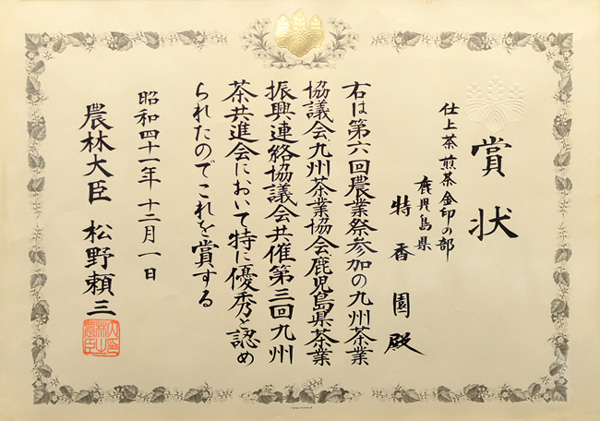 賞状
仕上茶 煎茶金印の部
鹿児島県
特香園殿
右は第六回農業祭参加の九州茶業
協議会九州茶業協会鹿児島県茶業
振興連絡協議会共催第三回九州
茶共進会において特に優秀と認め
られたのでこれを賞する
昭和四十一年十二月一日
農林大臣 松野頼三